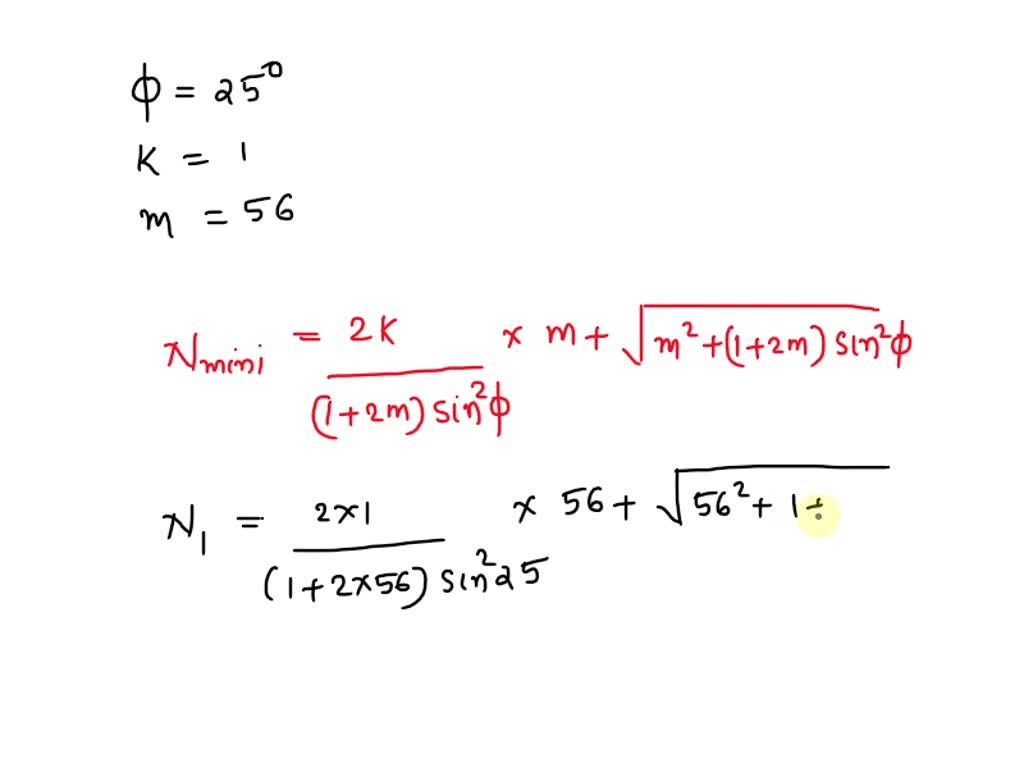 ϕ = 25°
K = 1
m = 56
Nmini = 2K / (1+2m) sin²ϕ × m + √m²+(1+2m) sin²ϕ
N₁ = 2×1 / (1+2×56) sin²25 × 56 + √56² + 1 +